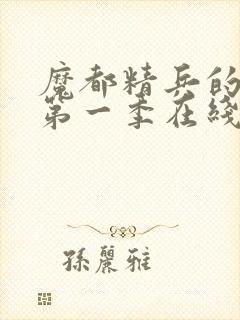 魔都精兵的
第一季在綫
孫麗雅